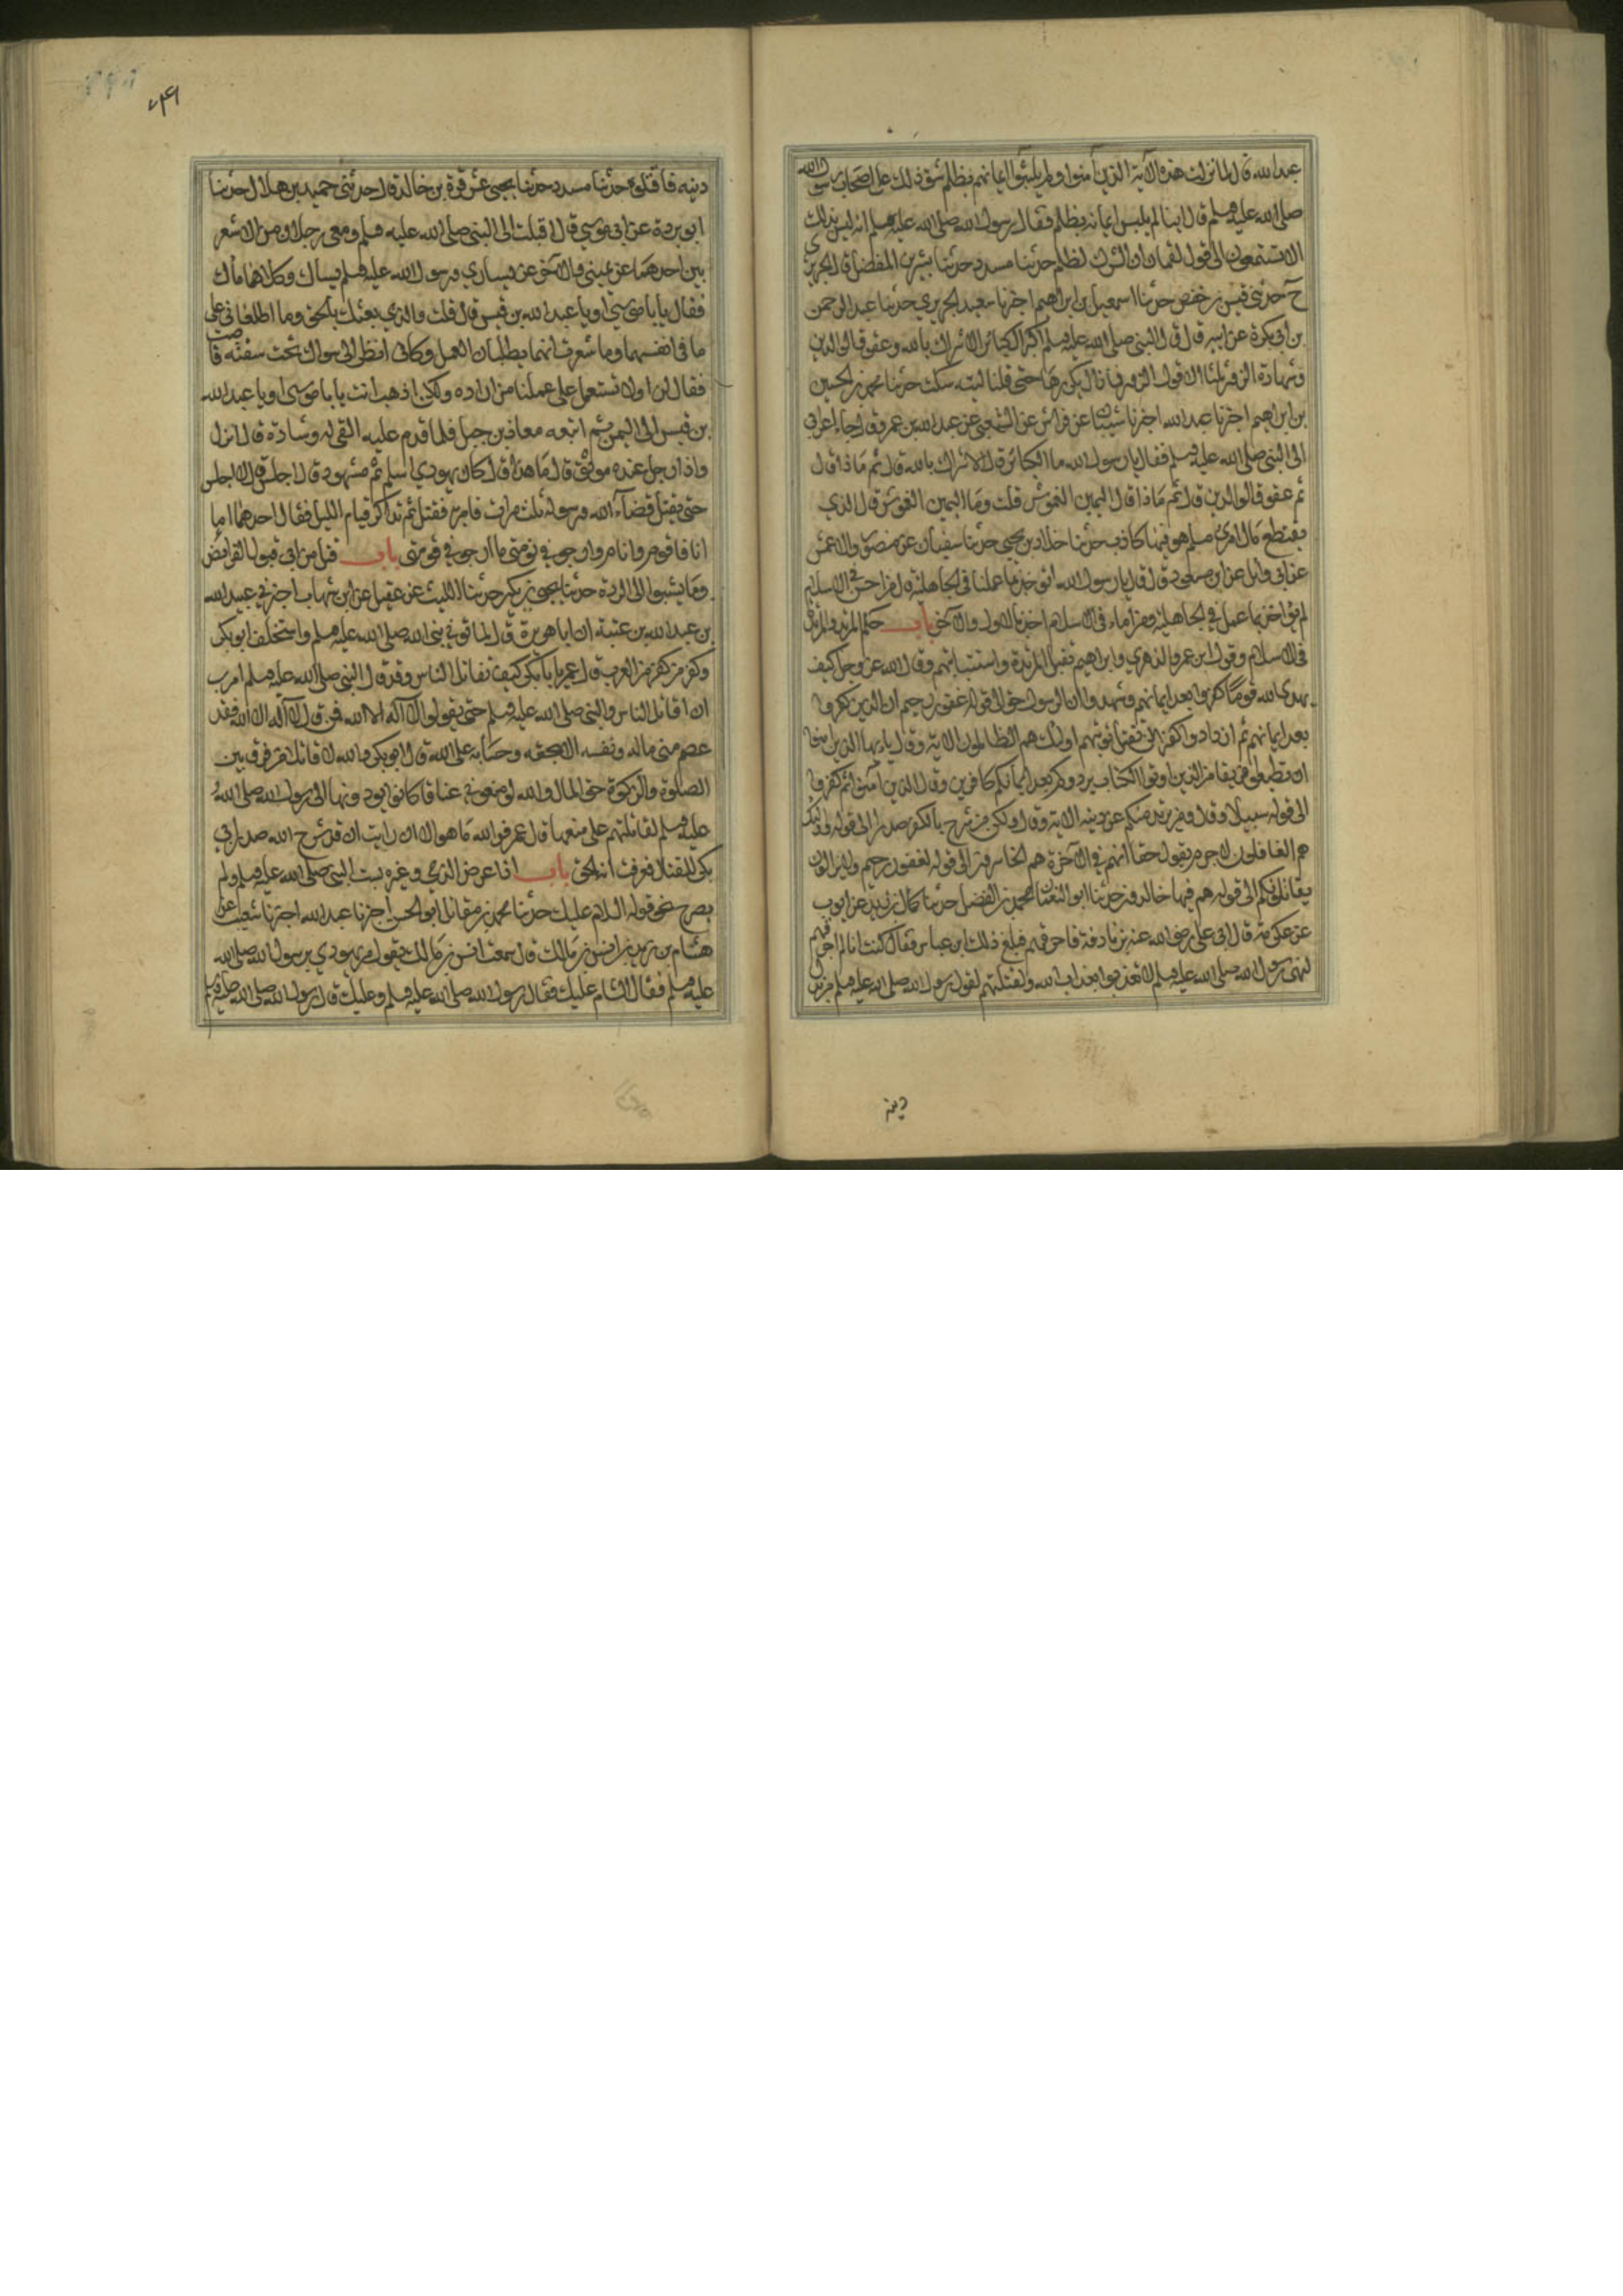 عبدالله قال لما نزلت هذه الآية الذين آمنوا ولم يلبسوا ايمانهم بظلم شق ذلك على اصحاب رسول الله
صلى الله عليه وسلم قال اينا لم يلبس ايمانه بظلم فقال رسول الله صلى الله عليه وسلم انه ليس بذلك
الا تستمعون الى قول لقمان ان الشرك لظلم حدثنا مسدد حدثنا بشر بن المفضل قال الجريري
ح حدثني قيس بن حفص حدثنا اسمعيل بن ابراهيم اخبرنا سعيد الجريري حدثنا عبد الرحمن
بن ابي بكرة عن ابيه قال قال النبي صلى الله عليه وسلم اكبر الكبائر الاشراك بالله وعقوق الوالدين
وشهادة الزور ثلثا او قول الزور فما زال يكررها حتى قلنا ليته سكت حدثنا محمد بن الحسين
بن ابراهيم اخبرنا عبدالله اخبرنا شيبان عن فراس عن الشعبي عن عبدالله بن عمرو قال جاء اعرابي
الى النبي صلى الله عليه وسلم فقال يا رسول الله ما الكبائر قال الاشراك بالله قال ثم ماذا قال
ثم عقوق الوالدين قال ثم ماذا قال اليمين الغموس قلت وما اليمين الغموس قال الذي
يقتطع مال امرئ مسلم هو فيها كاذب حدثنا خلاد بن يحيى حدثنا سفيان عن منصور والاعمش
عن ابي وائل عن ابن مسعود قال قال يا رسول الله انؤخذ بما عملنا في الجاهلية قال من احسن في الاسلام
لم يؤاخذ بما عمل في الجاهلية ومن اساء في الاسلام اخذ بالاول والآخر باب حكم المرتد والمرتدة
في الاسلام وقول ابن عمر والزهري وابراهيم تقتل المرتدة واستتابتهم وقال الله عز وجل كيف
يهدي الله قوما كفروا بعد ايمانهم وشهدوا ان الرسول حق الى قوله غفور رحيم ان الذين كفروا
بعد ايمانهم ثم ازدادوا كفرا لن تقبل توبتهم اولئك هم الظالمون الآية وقال يا ايها الذين امنوا
ان تطيعوا فريقا من الذين اوتوا الكتاب يردوكم بعد ايمانكم كافرين وقال الذين آمنوا ثم كفروا
الى قوله سبيلا وقال ومن يرتدد منكم عن دينه الآية وقال ولكن من شرح بالكفر صدرا الى قوله واولئك
هم الغافلون لا جرم يقول حقا انهم في الآخرة هم الخاسرون الى قوله لغفور رحيم ولا يزالون
يقاتلونكم الى قوله هم فيها خالدون حدثنا ابو النعمان محمد بن الفضل حدثنا حماد بن زيد عن ايوب
عن عكرمة قال اتى علي رضي الله عنه بزنادقة فاحرقهم فبلغ ذلك ابن عباس فقال لو كنت انا لم احرقهم
لنهي رسول الله صلى الله عليه وسلم لا تعذبوا بعذاب الله ولقتلتهم لقول رسول الله صلى الله عليه وسلم من بدل
دينه
دينه فاقتلوه حدثنا مسدد حدثنا يحيى عن قرة بن خالد قال حدثني حميد بن هلال حدثنا
ابو بردة عن ابي موسي قال اقبلت الى النبي صلى الله عليه وسلم ومعي رجلان من الاشعر
يين احدهما عن يميني والآخر عن يساري ورسول الله عليه وسلم يستاك وكلاهما سأل
فقال يا با موسي او يا عبد الله بن قيس قال قلت والذي بعثك بالحق وما اطلعاني على
ما في انفسهما وما شعرت انهما يطلبان العمل وكاني انظر الى سواك تحت شفته قلصت
فقال لن او لا نستعمل على عملنا من اراده ولكن اذهب انت يا با موسى او يا عبد الله
بن قيس الى اليمن ثم اتبعه معاذ بن جبل فلما قدم عليه القى له وسادة قال انزل
واذا رجل عنده موثق قال ما هذا قال كان يهوديا اسلم ثم تهود قال اجلس قال لا اجلس
حتى يقتل قضاء الله ورسوله ثلث مرات فامر به فقتل ثم تذاكر قيام الليل فقال احدهما اما
انا فاقوم وانام وارجو في نومتي ما ارجو في قومتي باب قتل من ابى قبول الفرائض
وما نسبوا الى الردة حدثنا يحيى بن بكير حدثنا الليث عن عقيل عن ابن شهاب اخبرني عبيد الله
بن عبد الله بن عتبة ان ابا هريرة قال لما توفي نبي الله صلى الله عليه وسلم واستخلف ابو بكر
وكفر من كفر من العرب قال عمر يا با بكر كيف تقاتل الناس وقد قال النبي صلى الله عليه وسلم امرت
ان اقاتل الناس والنبي صلى الله عليه وسلم حتى يقولوا لا اله الا الله فمن قال لا اله الا الله فقد
عصم مني ماله ونفسه الا بحقه وحسابه على الله قال ابو بكر والله لاقاتلن من فرق بين
الصلوة والزكوة حق المال والله لو منعوني عناقا كانوا يودونها الى رسول الله صلى الله
عليه وسلم لقاتلتهم على منعها قال عمر فوالله ما هو الا ان رايت ان قد شرح الله صدر ابي
بكر للقتال فعرفت انه الحق باب اذا عرض الذمي وغيره بسب النبي صلى الله عليه وسلم ولم
يصرح نحو قوله السام عليك حدثنا محمد بن مقاتل ابو الحسن اخبرنا عبدالله اخبرنا شعبة عن
هشام بن زيد بن انس بن مالك قال سمعت انس بن مالك يقول مر يهودي برسول الله صلى الله
عليه وسلم فقال السام عليك فقال رسول الله صلى الله عليه وسلم وعليك قال رسول الله صلى الله عليه وسلم